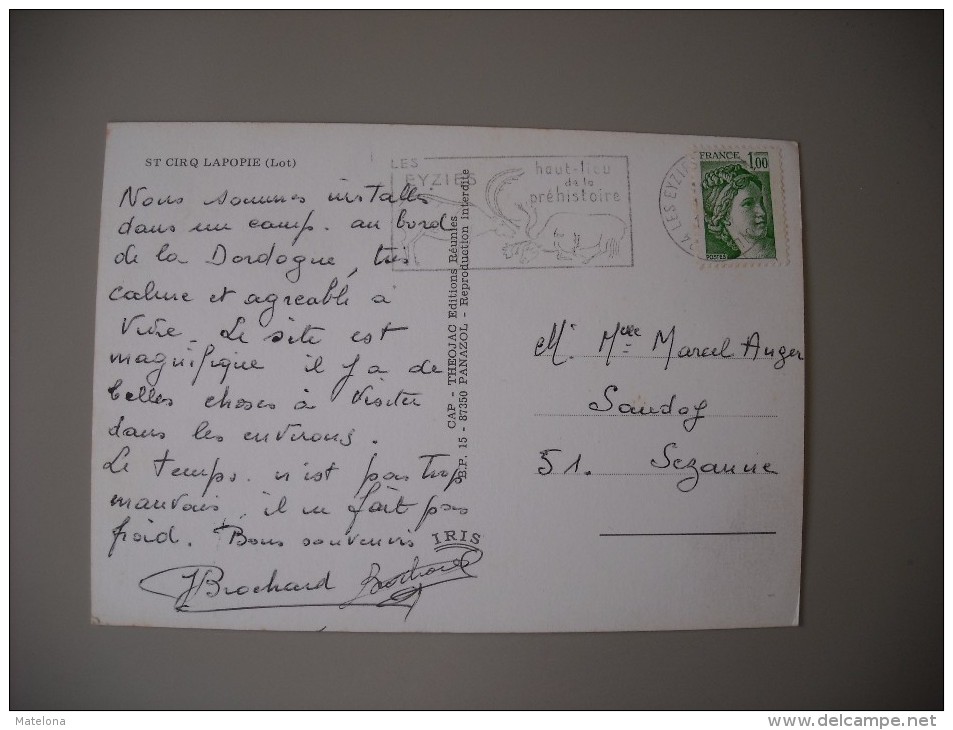 ST CIRQ LAPOPIE (Lot)
Nous sommes installés
dans un camp. au bord
de la Dordogne, très
calme et agréable à
vivre. Le site est
magnifique il y a de
belles choses à visiter
dans les environs.
Le temps. n'est pas trop
mauvais, il ne fait pas
froid. Bons souvenirs
JBrochard
CAP - THEOJAC Editions Réunies
B.P. 15 - 87350 PANAZOL - Reproduction Interdite
IRIS
LES
EYZIES
haut-lieu
de la
préhistoire
24 LES EYZIES
FRANCE
1,00
POSTES
M. Melle Marcel Auger
Saudoy
51. Sezanne
Matelona
www.delcampe.net